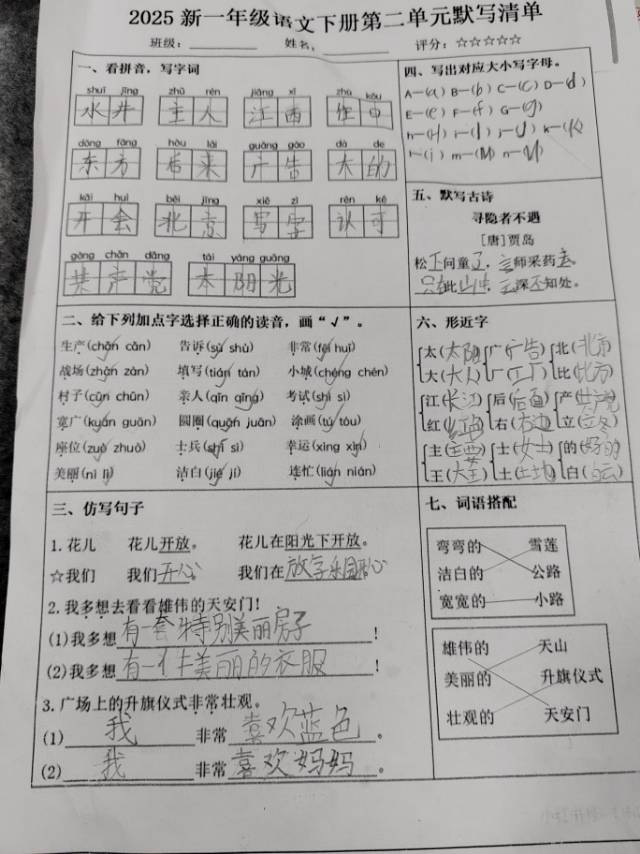 2025新一年级语文下册第二单元默写清单
班级：________ 姓名：________ 评分：☆☆☆☆☆
一、看拼音，写字词
shuǐ jǐng zhǔ rén jiāng xī zhù kǒu
水井 主人 江西
dōng fāng hòu lái guǎng gào dà de
东方 后来 广告 大的
kāi huì běi jīng xiě zì rèn kě
开会 北京 写字 认可
gòng chǎn dǎng tài yáng guāng
共产党 太阳光
二、给下列加点字选择正确的读音，画“√”。
生产(chǎn cǎn) 告诉(sù shù) 非常(fēi huī)
战场(zhàn zàn) 填写(tián tán) 小城(chéng chén)
村子(cūn chūn) 亲人(qīn qīng) 考试(shì sì)
宽广(kuān guān) 圆圈(quān juān) 涂画(tú tóu)
座位(zuò zhuò) 士兵(shì sì) 幸运(xìng xìn)
美丽(nì lì) 洁白(jié jí) 连忙(lián nián)
三、仿写句子
1.花儿 花儿开放。 花儿在阳光下开放。
☆我们 我们开心。 我们在放学乐园开心
2.我多想去看看雄伟的天安门！
(1)我多想有一套特别美丽房子！
(2)我多想有一件美丽的衣服！
3.广场上的升旗仪式非常壮观。
(1)我非常喜欢蓝色。
(2)我非常喜欢妈妈。
四、写出对应大小写字母。
A—(a) B—(b) C—(c) D—(d)
E—(e) F—(f) G—(g)
h—(H) i—(I) j—(J) k—(K)
l—(i) m—(M) n—(N)
五、默写古诗
寻隐者不遇
[唐]贾岛
松下问童子，言师采药去。
只在此山中，云深不知处。
六、形近字
太(太阳) 广(广告) 北(北京)
大(大人) 厂(工厂) 比(比方)
江(长江) 后(后面) 产(共产党)
红 右(右边) 立
主 士(女士) 的(好的)
王(大王) 土(土地) 白(白云)
七、词语搭配
弯弯的 雪莲
洁白的 公路
宽宽的 小路
雄伟的 天山
美丽的 升旗仪式
壮观的 天安门